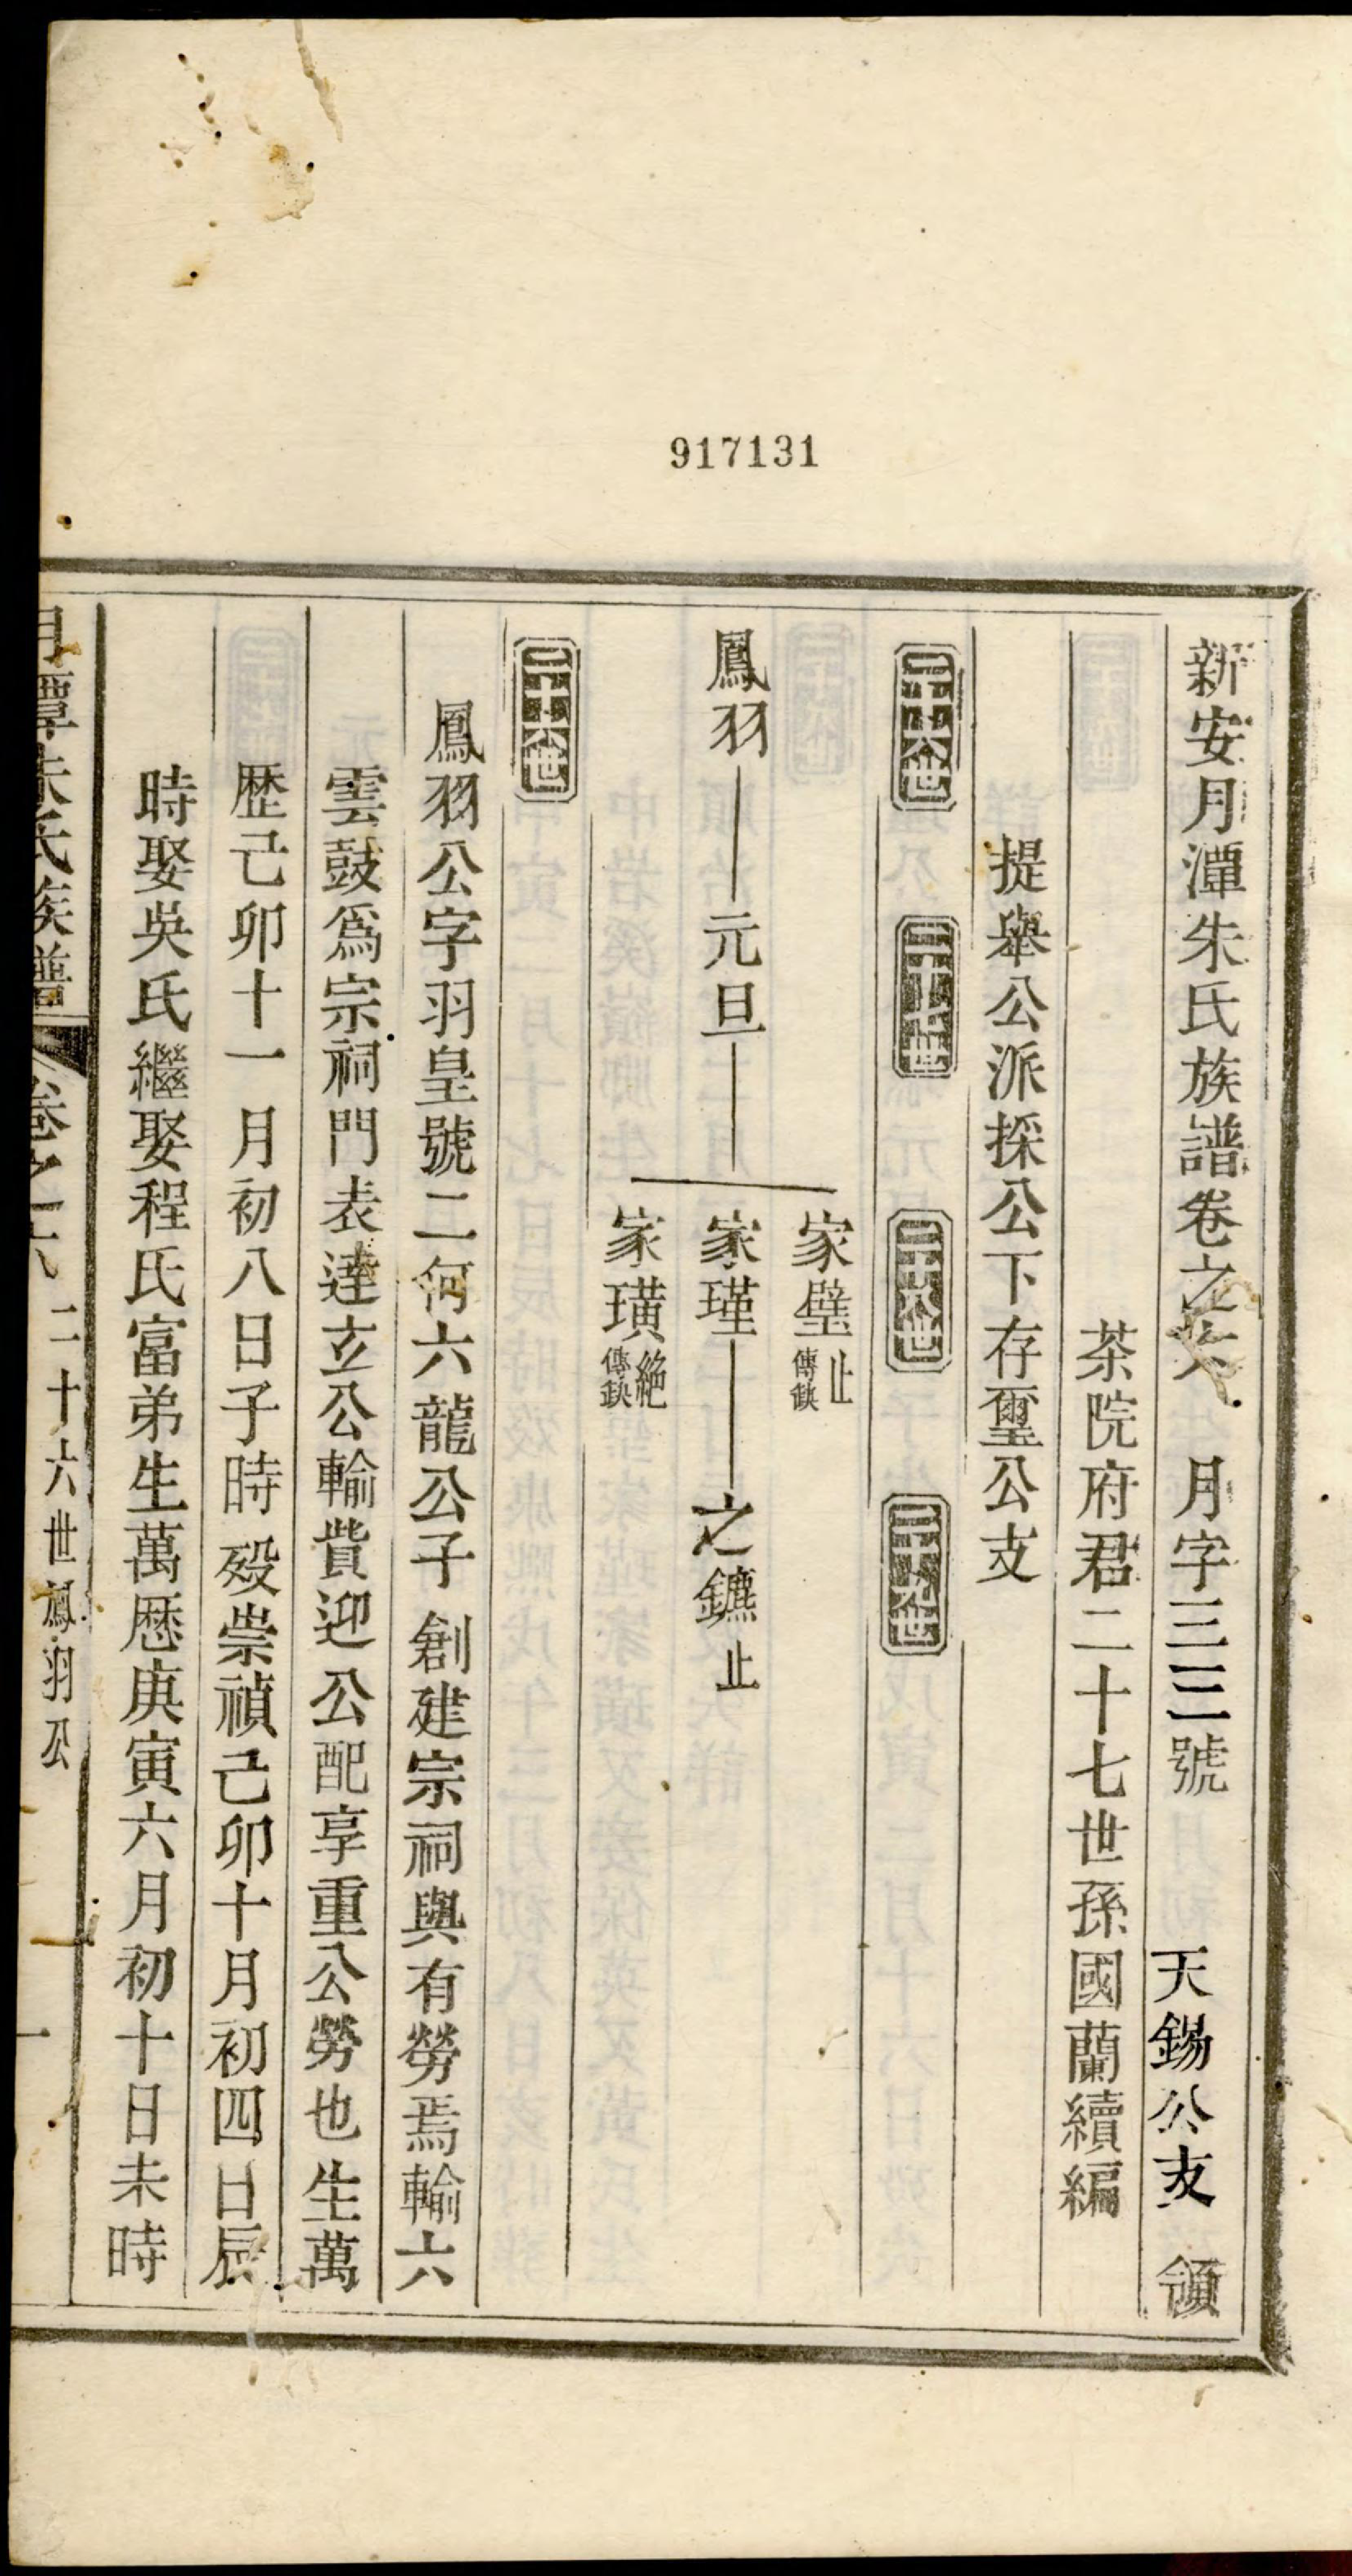 917131
新安月潭朱氏族譜卷之六　月字三三號　天錫公支　領
茶院府君二十七世孫國蘭續編
提舉公派採公下存璽公支
二十六世　二十七世　二十八世　二十九世
家璧 止 傳缺
鳳羽　元旦　家瑾　之鑣 止
家璜 絕 傳缺
二十六世
鳳羽公字羽皇號二何六龍公子創建宗祠與有勞焉輸六
雲鼓為宗祠門表達立公輸貲迎公配享重公勞也生萬
歷己卯十一月初八日子時歿崇禎己卯十月初四日辰
時娶吳氏繼娶程氏富弟生萬歷庚寅六月初十日未時
月潭朱氏族譜　卷之六　二十六世鳳羽公　一